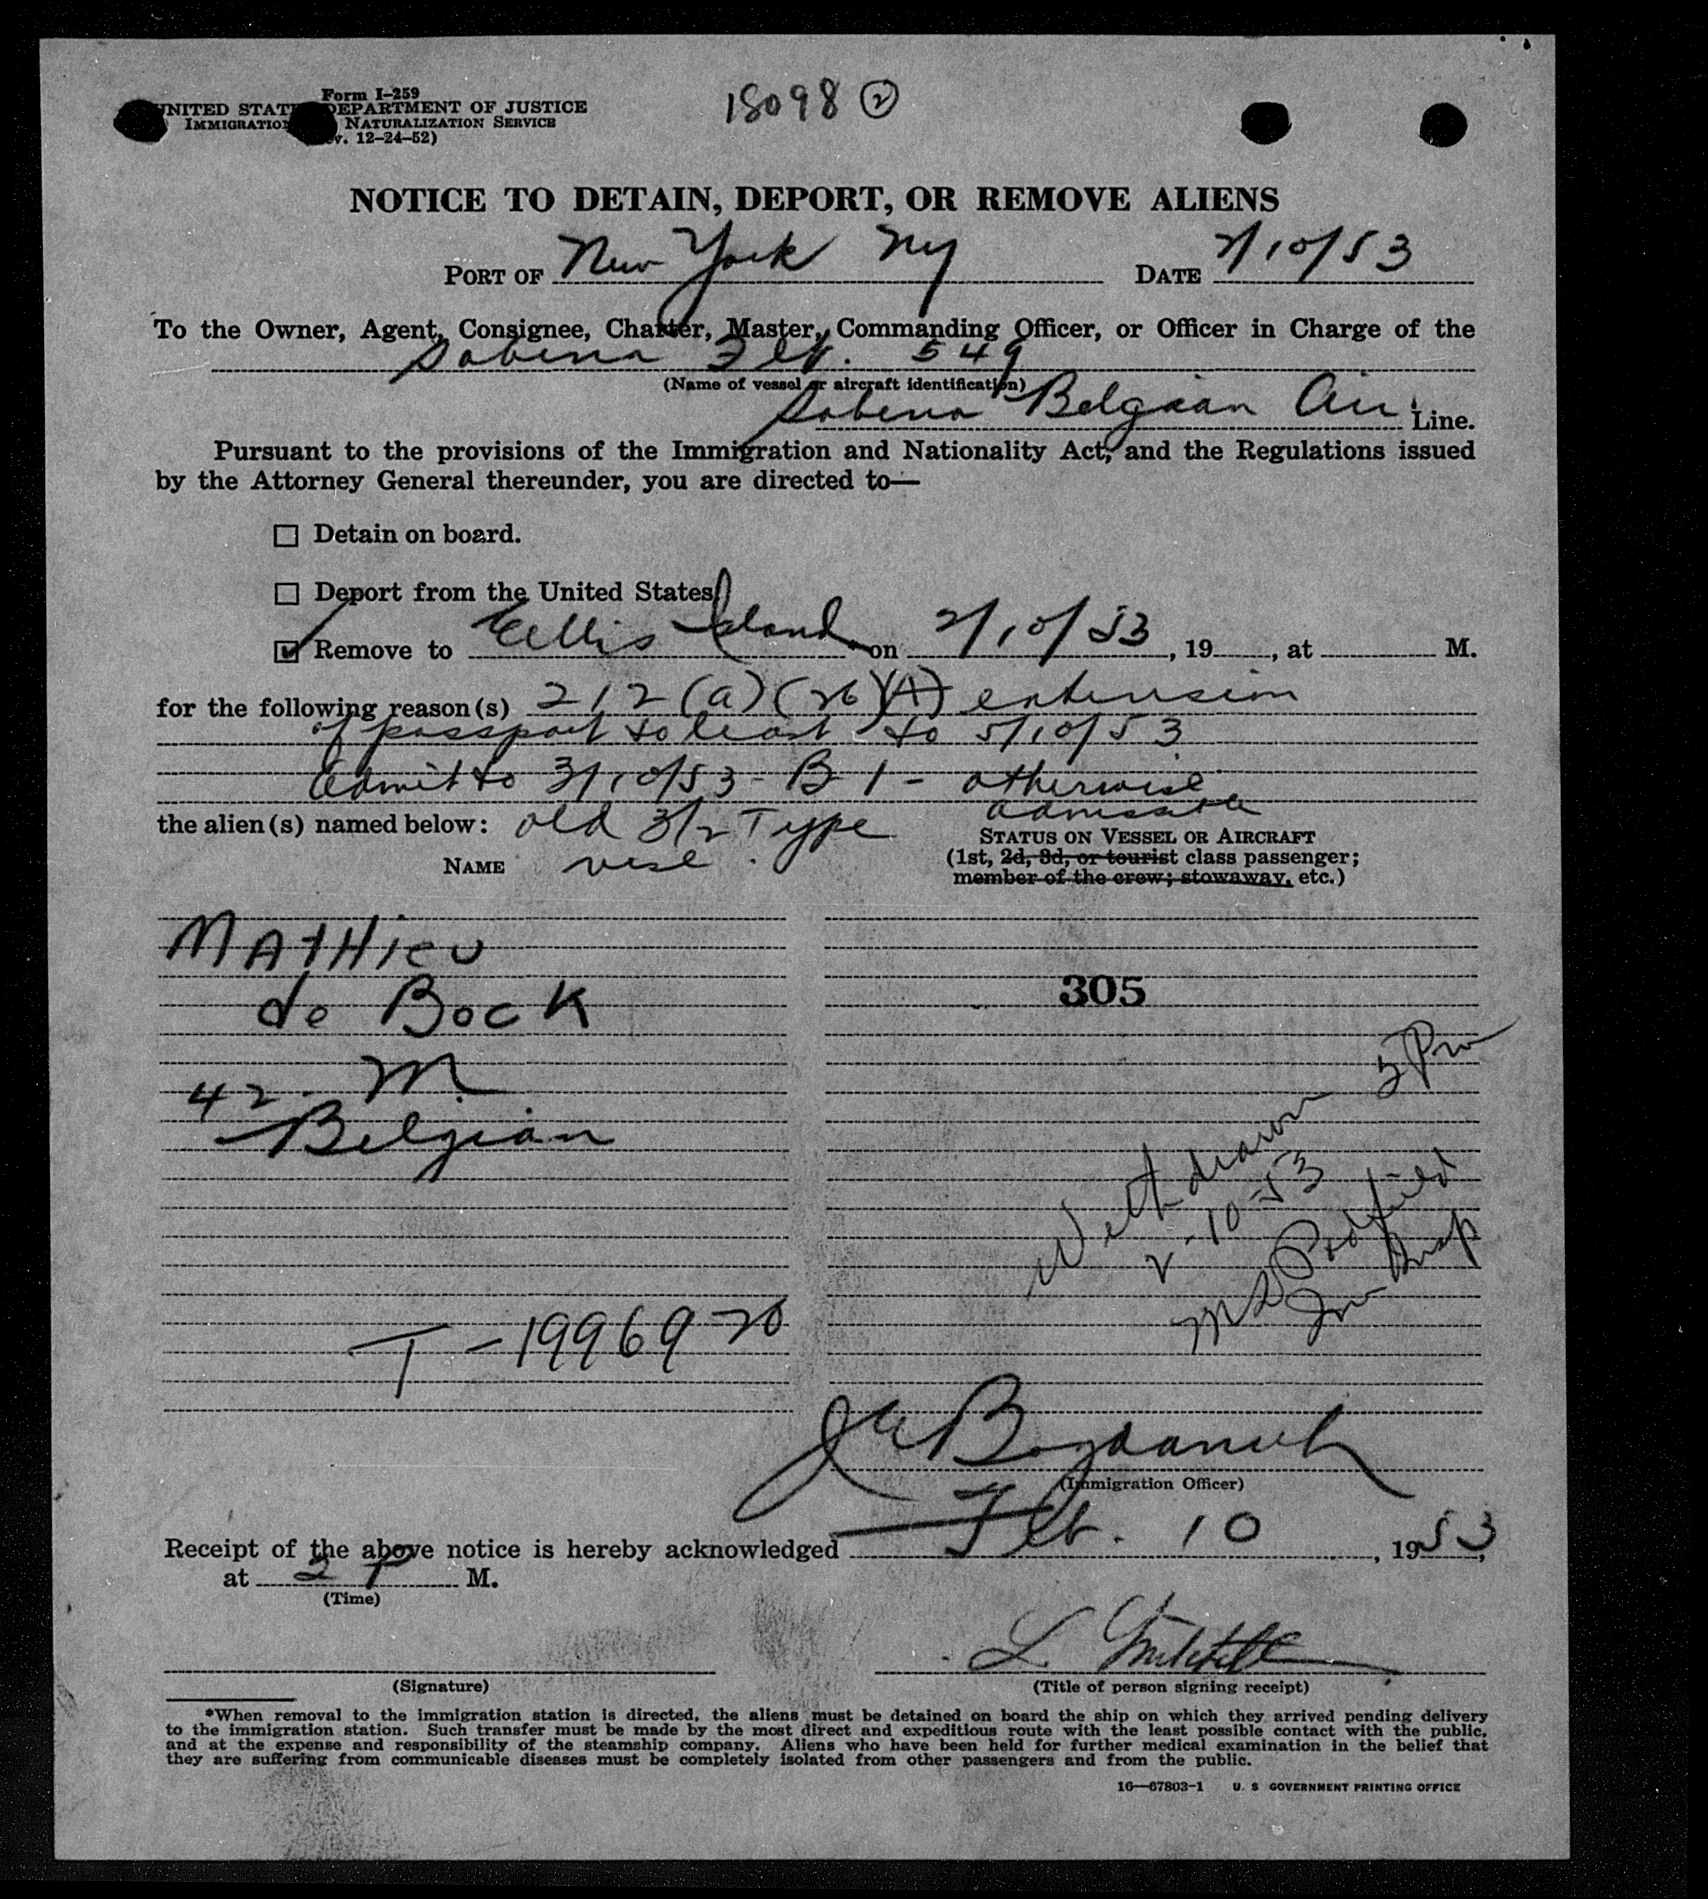 Form I-259
UNITED STATES DEPARTMENT OF JUSTICE
IMMIGRATION NATURALIZATION SERVICE
v. 12-24-52)
18098 (2)
NOTICE TO DETAIN, DEPORT, OR REMOVE ALIENS
PORT OF New York NY DATE 2/10/53
To the Owner, Agent, Consignee, Charter, Master, Commanding Officer, or Officer in Charge of the
Sabena Flt. 549
(Name of vessel or aircraft identification)
Sabena Belgian Air Line.
Pursuant to the provisions of the Immigration and Nationality Act, and the Regulations issued
by the Attorney General thereunder, you are directed to—
☐ Detain on board.
☐ Deport from the United States
☑ Remove to Ellis Island on 2/10/53, 19, at M.
for the following reason(s) 212(a)(26)(A) extension
of passport to least to 5/10/53
Admit to 3/10/53 - B 1 - otherwise
admissible
the alien(s) named below: old 3/2 Type
STATUS ON VESSEL OR AIRCRAFT
NAME vise.
(1st, 2d, 3d, or tourist class passenger;
member of the crew; stowaway, etc.)
MATHIEU
de Bock
42 - M.
Belgian
T-1996920
305
Withdrawn 5 PM
2-10-53
Insp
JABogdanich
(Immigration Officer)
Receipt of the above notice is hereby acknowledged Feb. 10, 1953,
at 2 P M.
(Time)
L. Mitchell
(Signature) (Title of person signing receipt)
*When removal to the immigration station is directed, the aliens must be detained on board the ship on which they arrived pending delivery
to the immigration station. Such transfer must be made by the most direct and expeditious route with the least possible contact with the public,
and at the expense and responsibility of the steamship company. Aliens who have been held for further medical examination in the belief that
they are suffering from communicable diseases must be completely isolated from other passengers and from the public.
16—67803-1 U. S GOVERNMENT PRINTING OFFICE